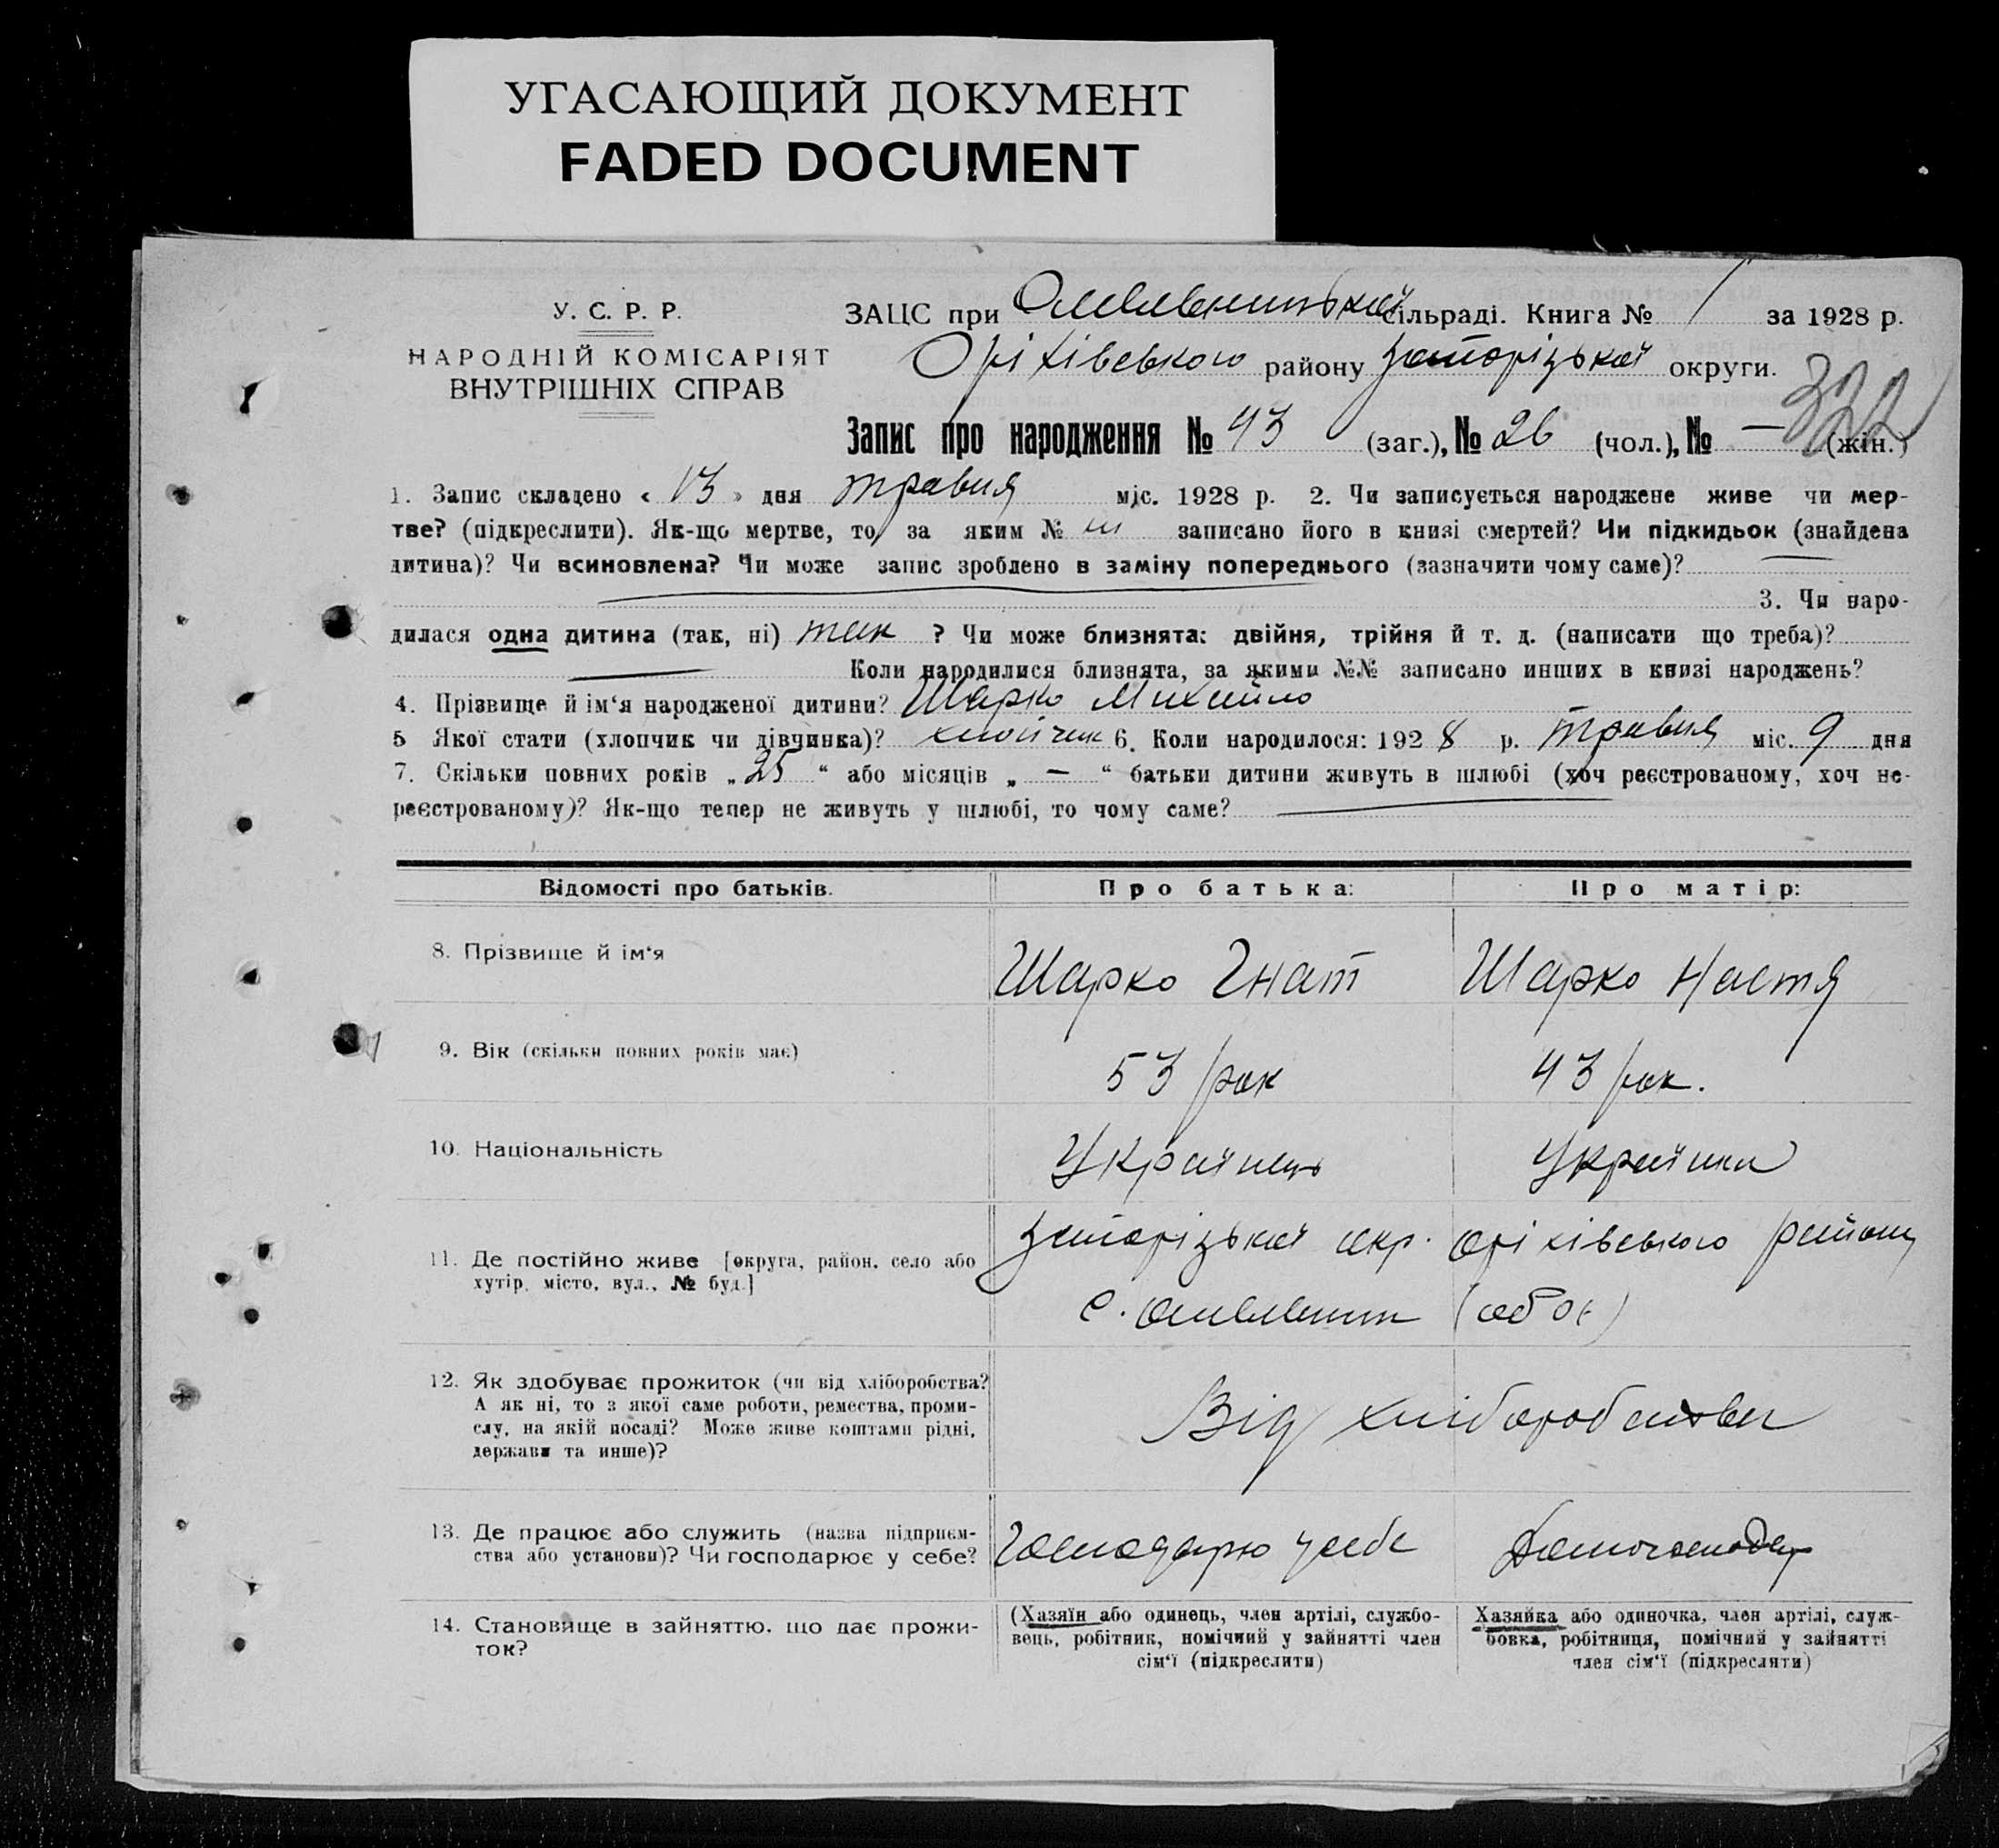 УГАСАЮЩИЙ ДОКУМЕНТ
FADED DOCUMENT
У. С. Р. Р.
НАРОДНІЙ КОМІСАРІЯТ
ВНУТРІШНІХ СПРАВ
ЗАЦС при Омельницькій сільраді. Книга № 1 за 1928 р.
Оріхівського району Запорізької округи.
322
Запис про народження № 43 (заг.), № 26 (чол.), № — (жін.)
1. Запис складено « 13 » дня травня міс. 1928 р. 2. Чи записується народжене живе чи мер-
тве? (підкреслити). Як-що мертве, то за яким № записано його в книзі смертей? Чи підкидьок (знайдена
дитина)? Чи всиновлена? Чи може запис зроблено в заміну попереднього (зазначити чому саме)? —
3. Чи наро-
дилася одна дитина (так, ні) так ? Чи може близнята: двійня, трійня й т. д. (написати що треба)?
— Коли народилися близнята, за якими №№ записано инших в книзі народжень?
4. Прізвище й ім‘я народженої дитини? Шарко Михайло
5 Якої стати (хлопчик чи дівчинка)? хлопчик 6. Коли народилося: 1928 р. травня міс. 9 дня
7. Скільки повних років „ 25 “ або місяців „ — “ батьки дитини живуть в шлюбі (хоч реєстрованому, хоч не-
реєстрованому)? Як-що тепер не живуть у шлюбі, то чому саме? —
Відомості про батьків. Про батька: Про матір:
8. Прізвище й ім‘я Шарко Гнат Шарко Настя
9. Вік (скільки повних років має) 53 рок 43 рок.
10. Національність Українець Українка
11. Де постійно живе [округа, район, село або
хутір, місто, вул., № буд.]
Запорізької окр. Оріхівського району
с. Омельник (обоє)
12. Як здобуває прожиток (чи від хліборобства?
А як ні, то з якої саме роботи, ремества, проми-
слу, на якій посаді? Може живе коштами рідні,
держави та инше)?
Від хліборобства
13. Де працює або служить (назва підприєм-
ства або установи)? Чи господарює у себе?
Господарю у себе Домогосподар
14. Становище в зайняттю, що дає прожи-
ток?
(Хазяїн або одинець, член артілі, службо-
вець, робітник, помічний у зайнятті член
сім‘ї (підкреслити)
Хазяйка або одиночка, член артілі, служ-
бовка, робітниця, помічний у зайнятті
член сім‘ї (підкреслити)